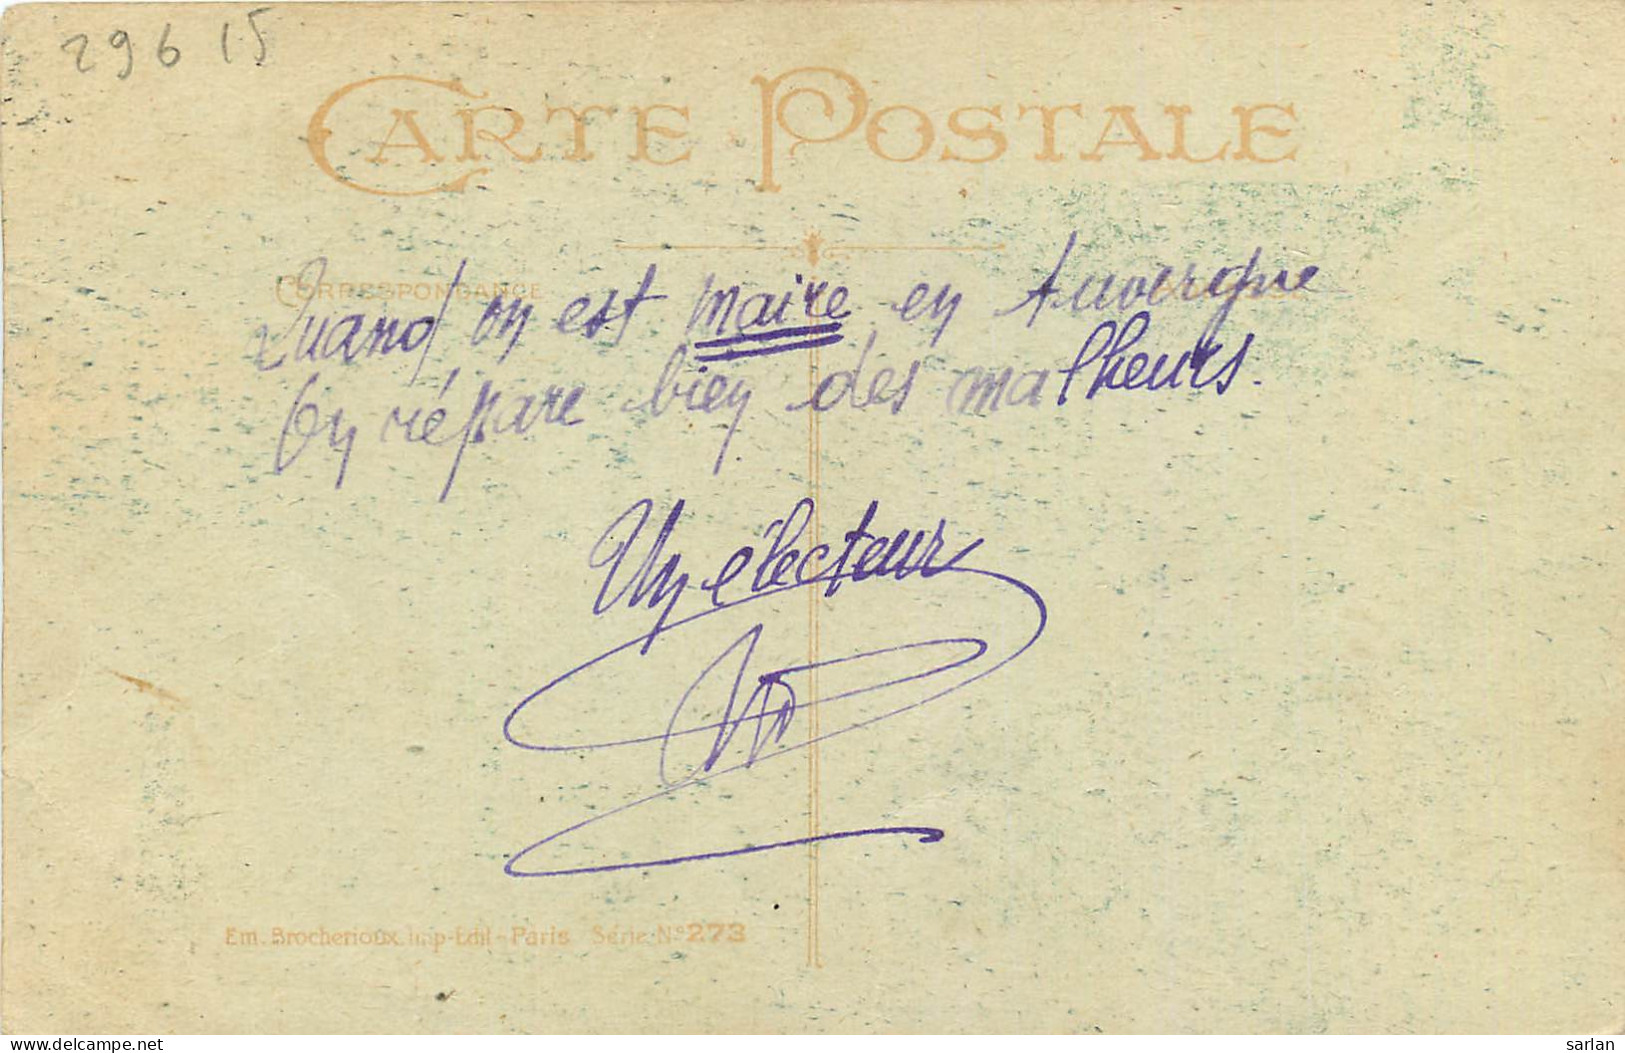 296 15
CARTE POSTALE
CORRESPONDANCE
Quand on est maire en Auvergne
On répare bien des malheurs.
Un électeur
Em. Brocherioux Imp-Edit - Paris Série N° 273
sarlan